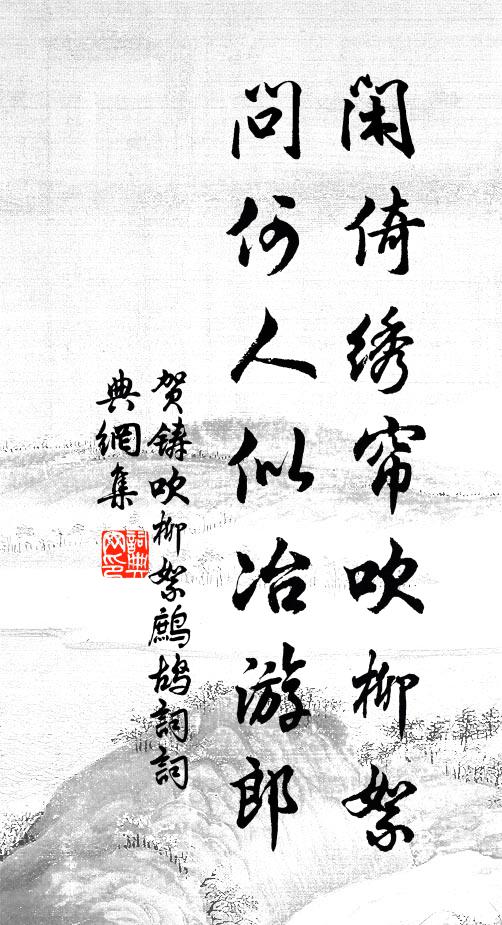 闲倚绣帘吹柳絮
问何人似冶游郎
贺铸吹柳絮鹧鸪词词
典網集
詞典网印